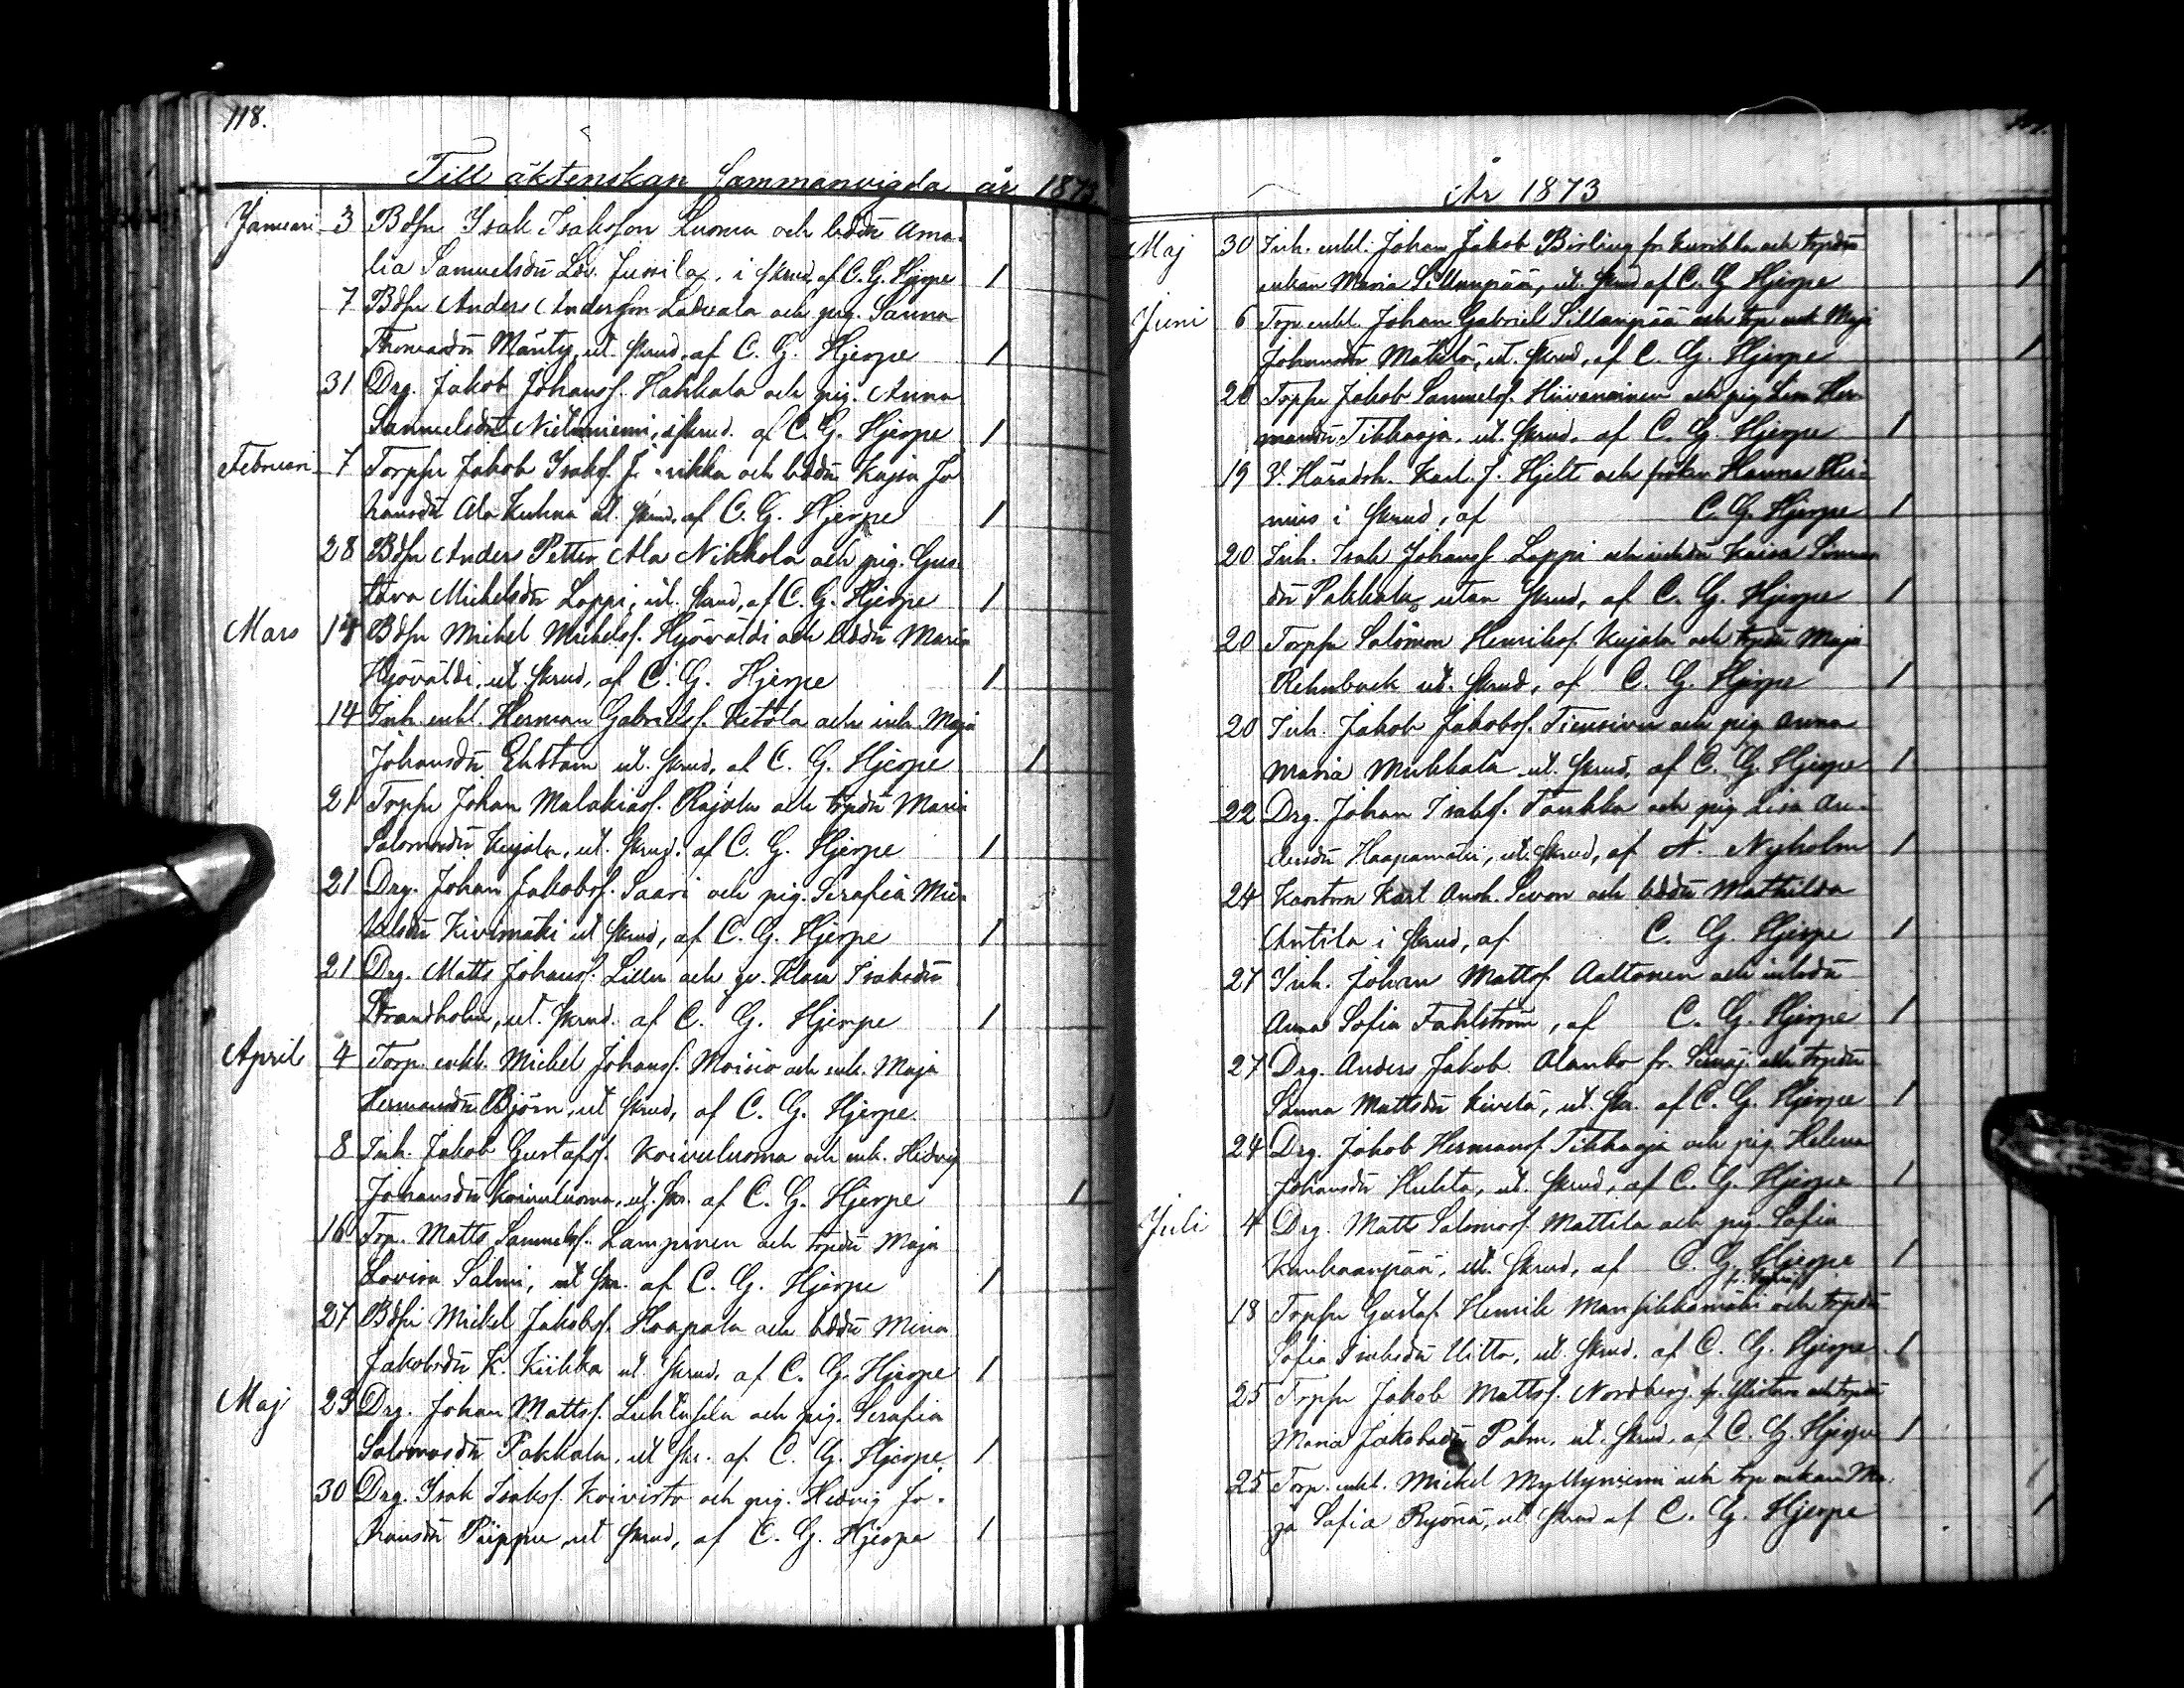 118.
Till äktenskap Sammanvigda år 1873.
Januari 3 Bdsn Isak Isaksson Luoma och bddr Ama-
lia Samuelsdr Jussila, i skrud, af C. G. Hjerpe 1
7 Bdsn Anders Andersson och pig. Sanna
Thomasdr Mänty, ut. skrud, af C. G. Hjerpe 1
31 Drg. Jakob Johansf. Hakkala och pig. Anna
Samuelsdr Nieminiemi, i skrud. af C. G. Hjerpe 1
Februari 7 Torpsn Jakob Isaksf. och bddr Kajsa Jo
hansdr Ala Kuhna ut. skrud, af C. G. Hjerpe 1
28 Bdsn Anders Petter Ala Nikkola och pig. Gus-
tava Michelsdr Loppi, ut. skrud, af C. G. Hjerpe 1
Mars 14 Bdsn Michel Michelsf. Hyövälti och bddr Maria
Hyövälti, ut. skrud, af C. G. Hjerpe 1
14 Inh. enkl. Herman Gabrielsf. Ketola och inh. Maja
Johansdr Ekstam ut. skrud, af C. G. Hjerpe 1
21 Torpsn Johan Malakiasf. Rajala och torpdr Maria
Salomonsdr Kujala, ut. skrud. af C. G. Hjerpe 1
21 Drg. Johan Jakobsf. Saari och pig. Serafia Mic-
kelsdr Kivimäki ut skrud, af C. G. Hjerpe 1
21 Drg. Matts Johansf. Lillu och qv. Klara Isaksdr
Strandholm, ut. skrud. af C. G. Hjerpe 1
April 4 Torp. enkl. Michel Johansf. Moisio och enk. Maja
Hermansdr Björn, ut skrud, af C. G. Hjerpe
8 Inh. Jakob Gustafsf. Koivuluoma och enk. Hedvig
Johansdr Koivuluoma, ut. skr. af C. G. Hjerpe 1
16 Torp. Matts Samuelsf. Lampinen och torpdr Maja
Lovisa Salmi, ut skr. af C. G. Hjerpe 1
27 Bdsn Mickel Jakobsf. Haapala och bddr Mina
Jakobsdr K. Kiikka ut. skrud, af C. G. Hjerpe 1
Maj 23 Drg. Johan Mattsf. och pig. Serafia
Salomonsdr Pakkala, ut skr. af C. G. Hjerpe 1
30 Drg. Isak Isaksf. Koivisto och pig. Hedvig Jo-
hansdr Piippu, ut skrud, af C. G. Hjerpe 1
År 1873
Maj 30 Inh. enkl. Johan Jakob Birling fr. Kurikka och torpdr
enkan Maria Sillanpää, ut. skrud af C. G. Hjerpe 1
Juni 6 Torp. enkl. Johan Gabriel Sillanpää och torp. enk. Maja
Johansdr Mäkelä, ut. skrud, af C. G. Hjerpe 1
20 Torpsn Jakob Samuelsf. Hiivanainen och pig. Lisa Her-
mansdr Tikkaoja, ut. skrud. af C. G. Hjerpe 1
19 V. Häradsh. Karl J. Hjelt och fröken Hanna
i skrud, af C. G. Hjerpe 1
20 Inh. Isak Johansf. Loppi och inhdr Kaisa
dr Pakkala, utan skrud, af C. G. Hjerpe 1
20 Torpsn Salomon Henriksf. Kujala och torpdr Maja
Rehnback ut. skrud, af C. G. Hjerpe 1
20 Inh. Jakob Jakobsf. och pig Anna
Maria Mukkala ut. skrud, af C. G. Hjerpe 1
22 Drg. Johan Isaksf. Tankka och pig Lisa An-
dersdr Haapamäki, ut. skrud, af A. Nyholm 1
24 Kantorn Karl Aush. Sevon och bddr Mathilda
Antila i skrud, af C. G. Hjerpe 1
27 Inh. Johan Mattsf. Aaltonen och inhdr
Anna Sofia Fahlström, af C. G. Hjerpe 1
27 Drg. Anders Jakob Alanko fr. och torpdr
Sanna Mattsdr Kivelä, ut. skr. af C. G. Hjerpe 1
24 Drg. Jakob Hermansf. Tikkaoja och pig. Helena
Johansdr Huhta, ut. skrud, af C. G. Hjerpe 1
Juli 4 Drg. Matts Salomonsf. Mattila och pig. Sofia
Kankaanpää, ut. skrud, af C. G. Hjerpe 1
18 Torpsn Gustaf Henrik Mansikkamäki och torpdr
Sofia Isaksdr Uitto, ut. skrud. af C. G. Hjerpe 1
25 Torpsn Jakob Mattsf. Nordberg fr. Ylistaro och torpdr
Maria Jakobsdr Palm, ut. skrud, af C. G. Hjerpe 1
25 Torp. enkl. Mickel Myllyniemi och torp. enkan Ma-
ja Sofia Ryönä, ut skrud af C. G. Hjerpe 1